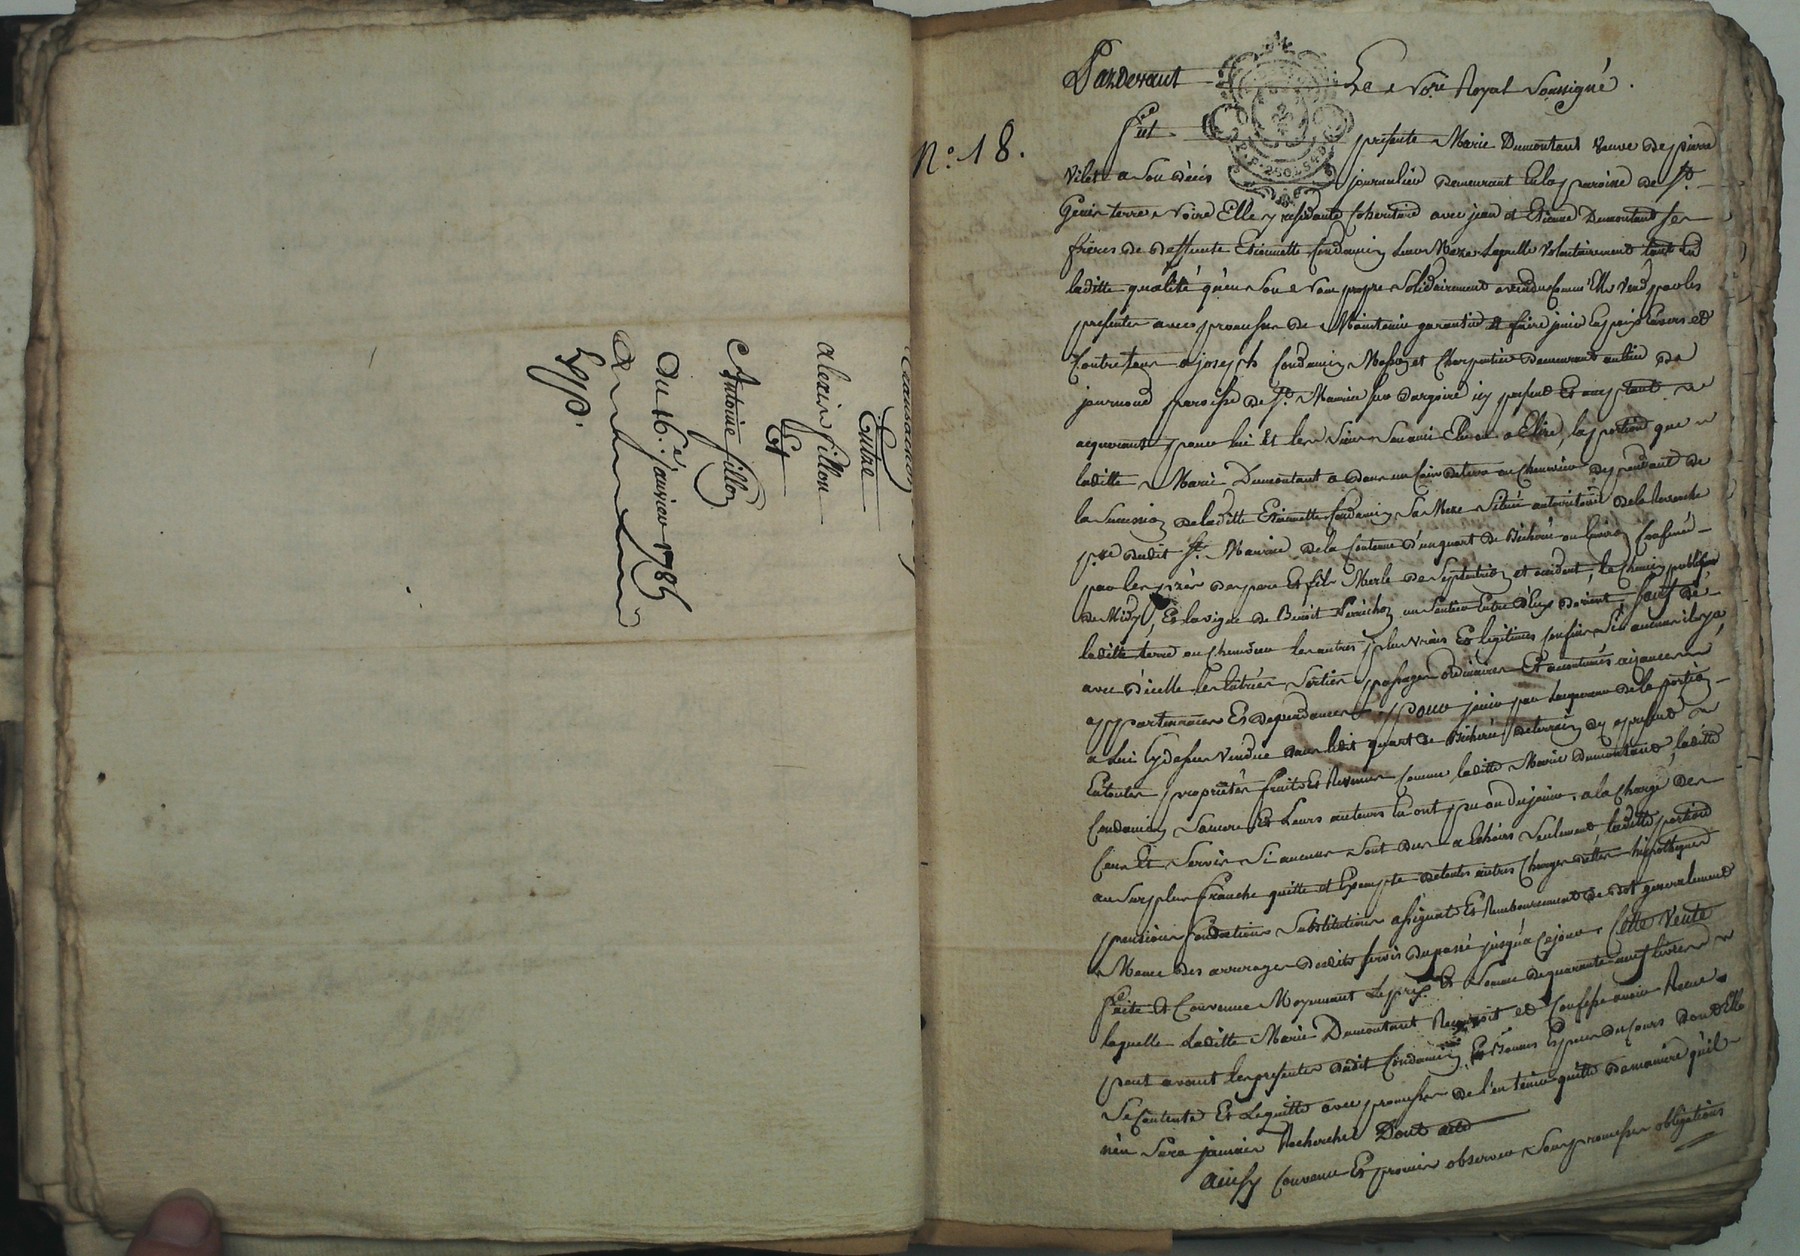 Transaction
Entre
alexis fillon
Et
Antoine fillon
Du 16.e janvier 1786
Expp.
N.o 18.
Pardevant Le Nore Royal Soussigné.
fut presente Marie Dumontant veuve de pierre
Vilet a Son décès journalier demeurant en la paroisse de St.
Genis terre Noire Elle y residante Coheritiere avec jean et Etienne Dumontant ses
freres de deffunte Etiennette Condamin leur Mere Laquelle Volontairement tant en
laditte qualité qu'en Son Nom propre Solidairement a vendu Comme Elle Vend par les
presentes avec promesse de Maintenir garantir et faire jouir En paix Envers et
Contre tous a joseph Condamin Masson et Charpentier demeurant au lieu de
journoud paroisse de St. Maurice sur dargoire icy present Et acceptant
acquerant pour lui Et les Siens Son ami Elu ou a Elire, la portion que
laditte Marie Dumontant a dans un Coin de terre ou Cheneviere dependant de
la Succession de laditte Etiennette Condamin Sa Mere Situé au territoire de la
psse dudit St. Maurice de la Contenue d'un quart de Bicherée ou Environ Confiné
par les prés des pere Et fils Merle de Septentrion et occident, le Chemin public
de Midy, Et la vigne de Benoit un Sentier Entre deux d'orient, Sauf de
laditte terre ou cheneviere les autres plus vrais Et legitimes confins Si aucuns il y a
avec d'icelle les Entrées Sorties passages ordinaires Et accoutumés aisances
appartenances Et dependances, pour jouir par Lacquereur de la portion
a lui Cy dessus Vendue dans ledit quart de Bicherée de terrein des a present
En toutes proprietés fruits Et Revenus Comme laditte Marie Dumontant, laditte
Condamin Sa mere Et Leurs auteurs En ont pu ou du jouir, a la Charge des
Cens Et Servis Si aucuns Sont dus a Echoirs Seulement, laditte portion
au Surplus franche quitte et Exempte de toutes autres Charges dettes hipotheques
pensions fondations Substitutions assignats Et Remboursement de dot generalement
Meme des arrerages desdits servis du passé jusqu'a Ce jour. Cette Vente
faite Et Convenue Moyennant Le prix Et Somme de quarante neuf livres
laquelle Laditte Marie Dumontant Reconnoit et Confesse avoir Recue
peut avant les presentes dudit Condamin En Bonnes Especes du Cours Dont Elle
Se Contente Et Lequitte avec promesse de l'en tenir quitte de maniere qu'il
n'en Sera jamais Recherché Dont acte
ainsy Convenu Et promis observer Sous promesses obligations